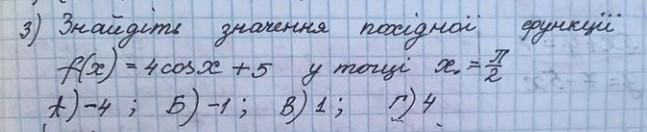 3) Знайдіть значення похідної функції
f(x) = 4cosx + 5 у точці x₀ = π/2
А) -4 ; Б) -1 ; В) 1 ; Г) 4